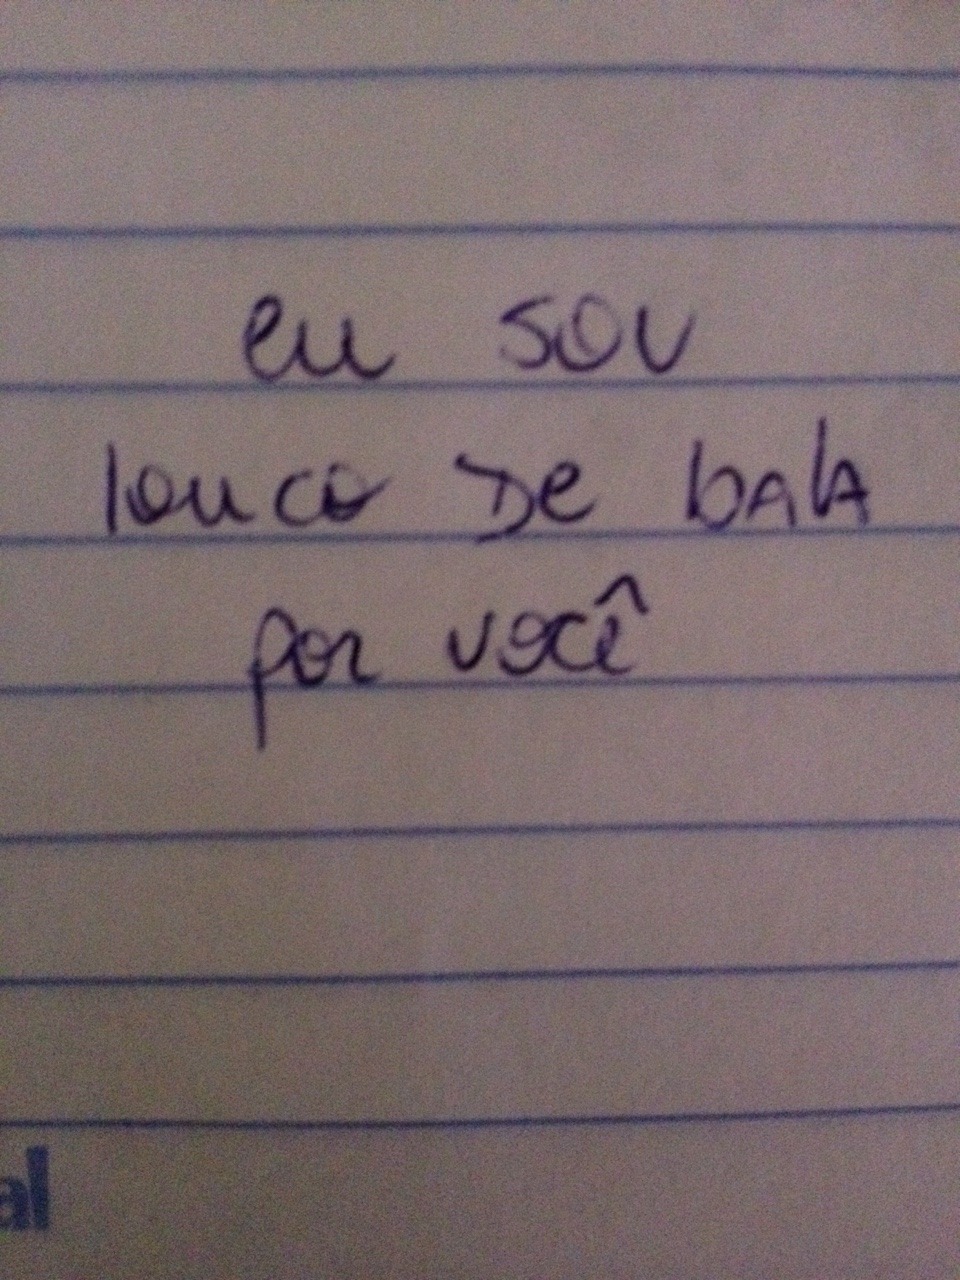 eu sou
louco De bAlA
por você
al